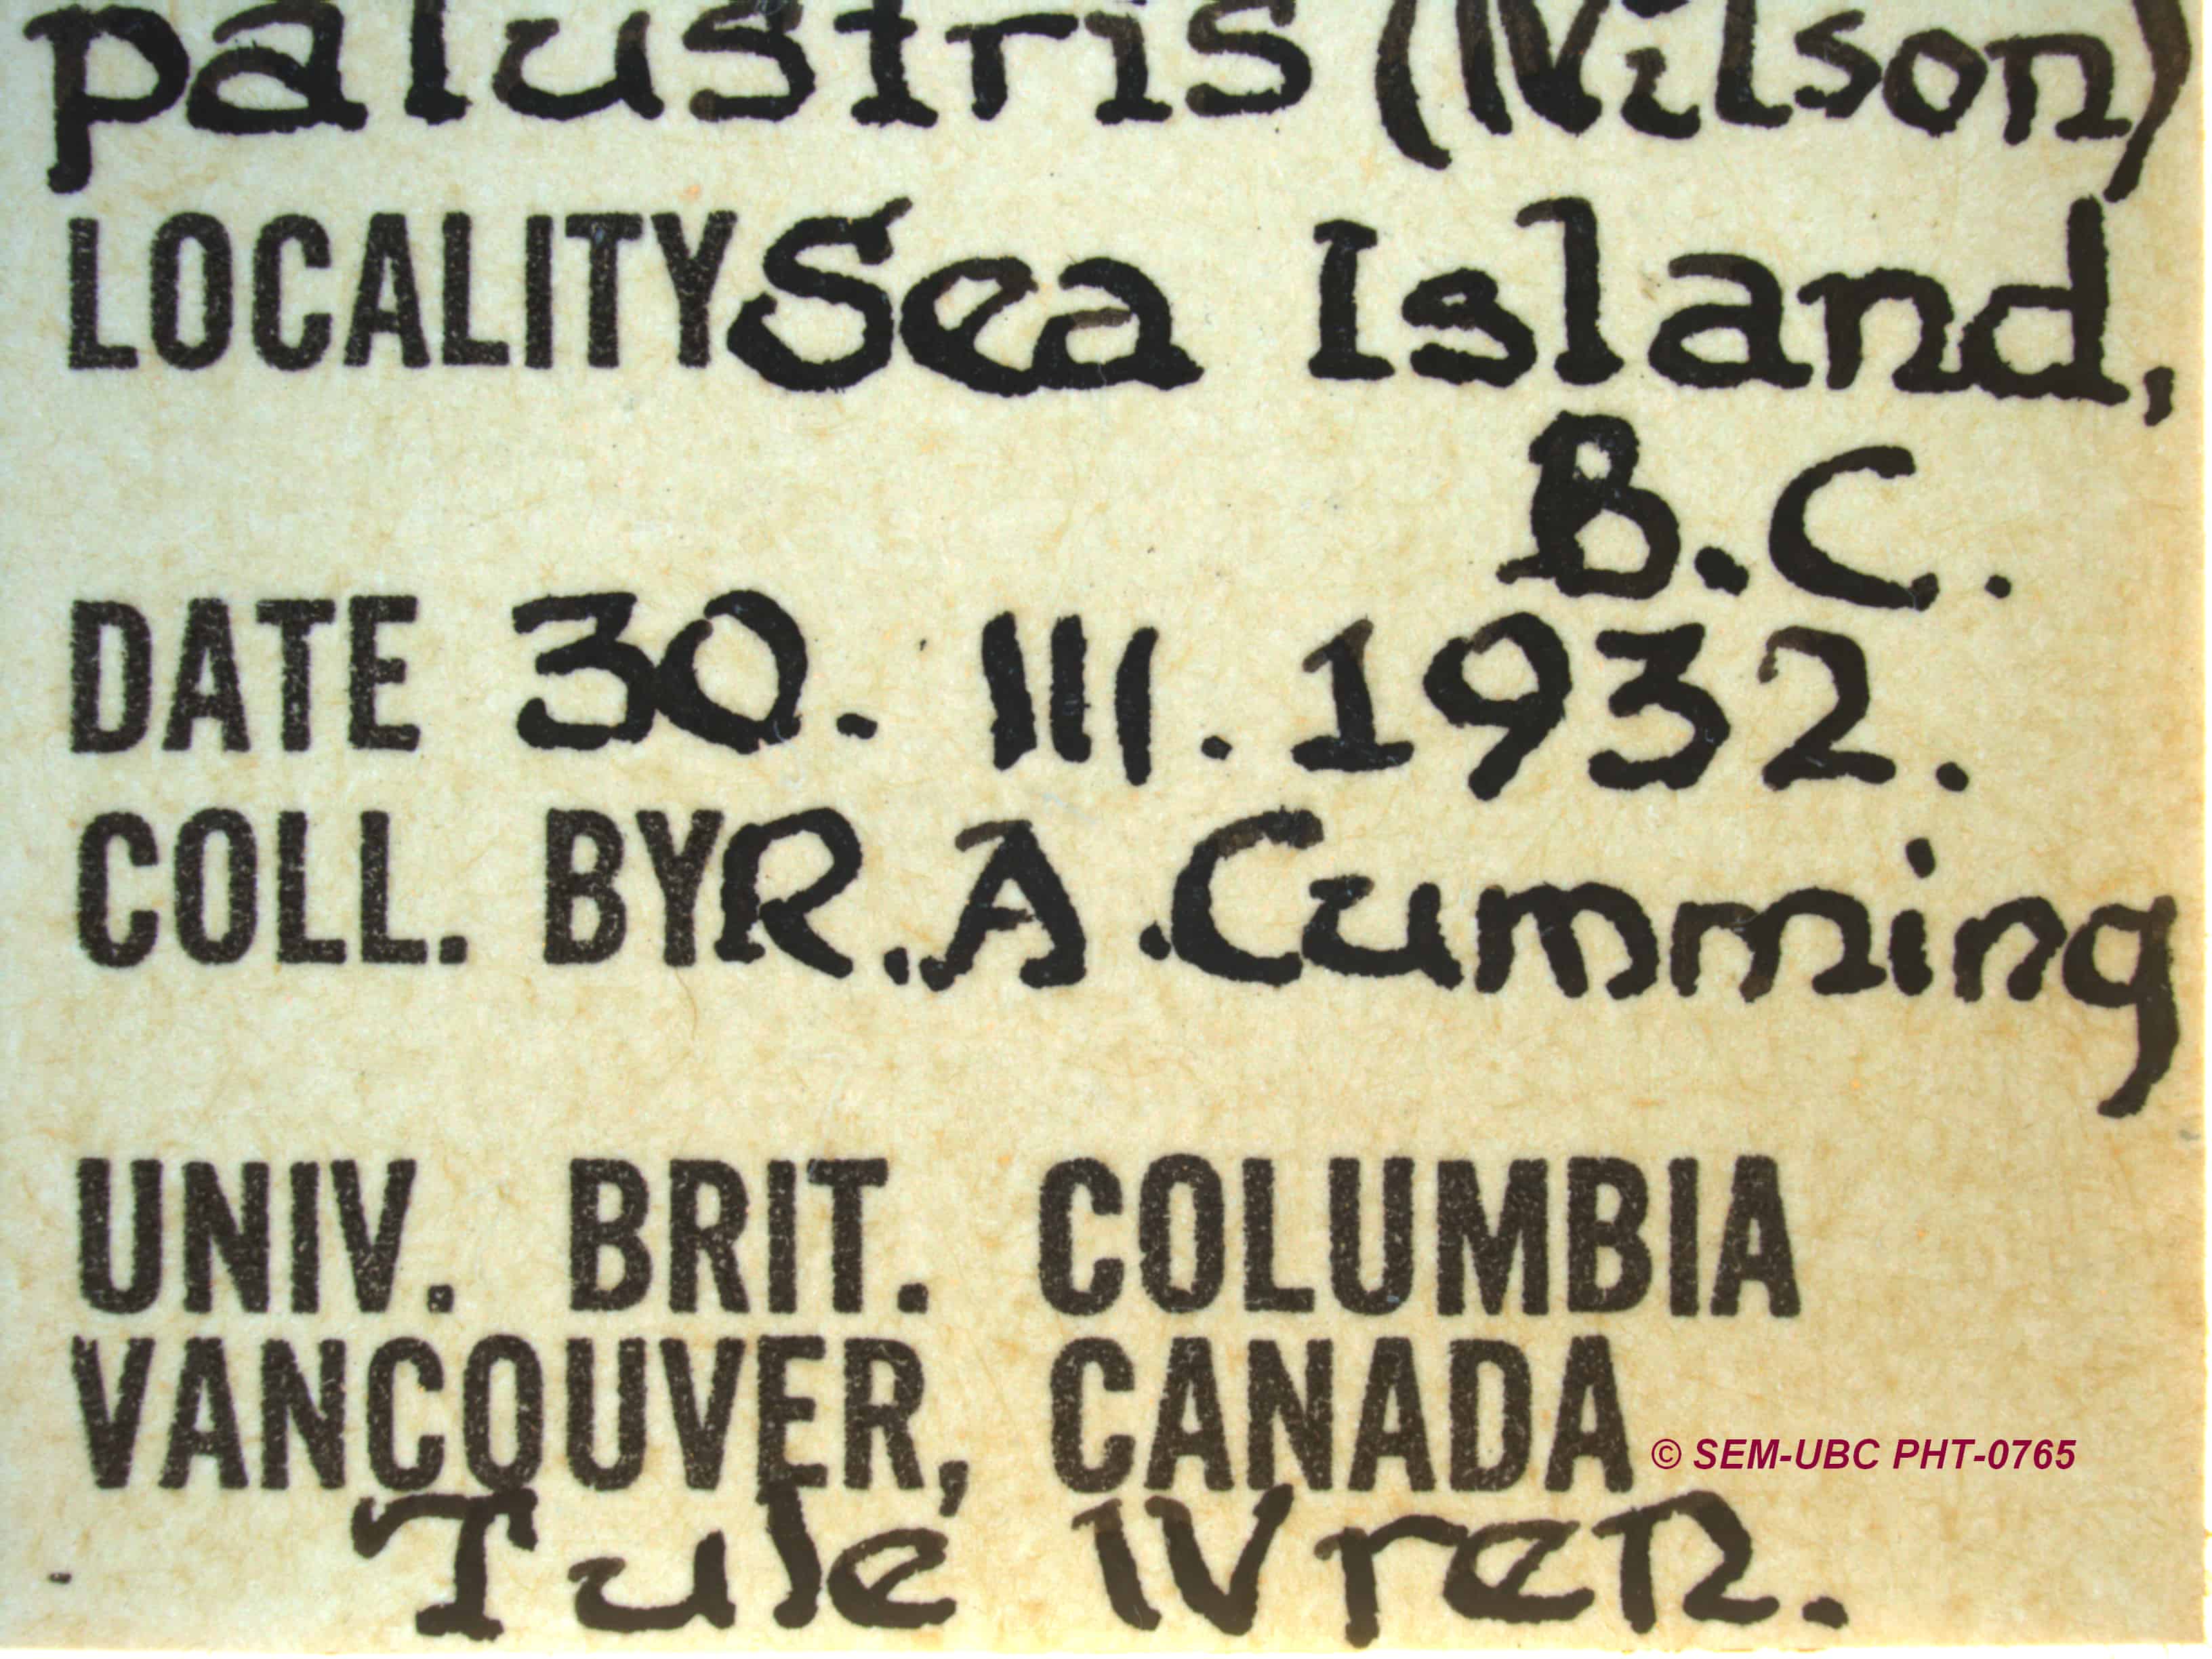 palustris (Wilson)
LOCALITY Sea Island,
B.C.
DATE 30. III. 1932.
COLL. BY R.A. Cumming
UNIV. BRIT. COLUMBIA
VANCOUVER, CANADA
© SEM-UBC PHT-0765
Tule Wren.